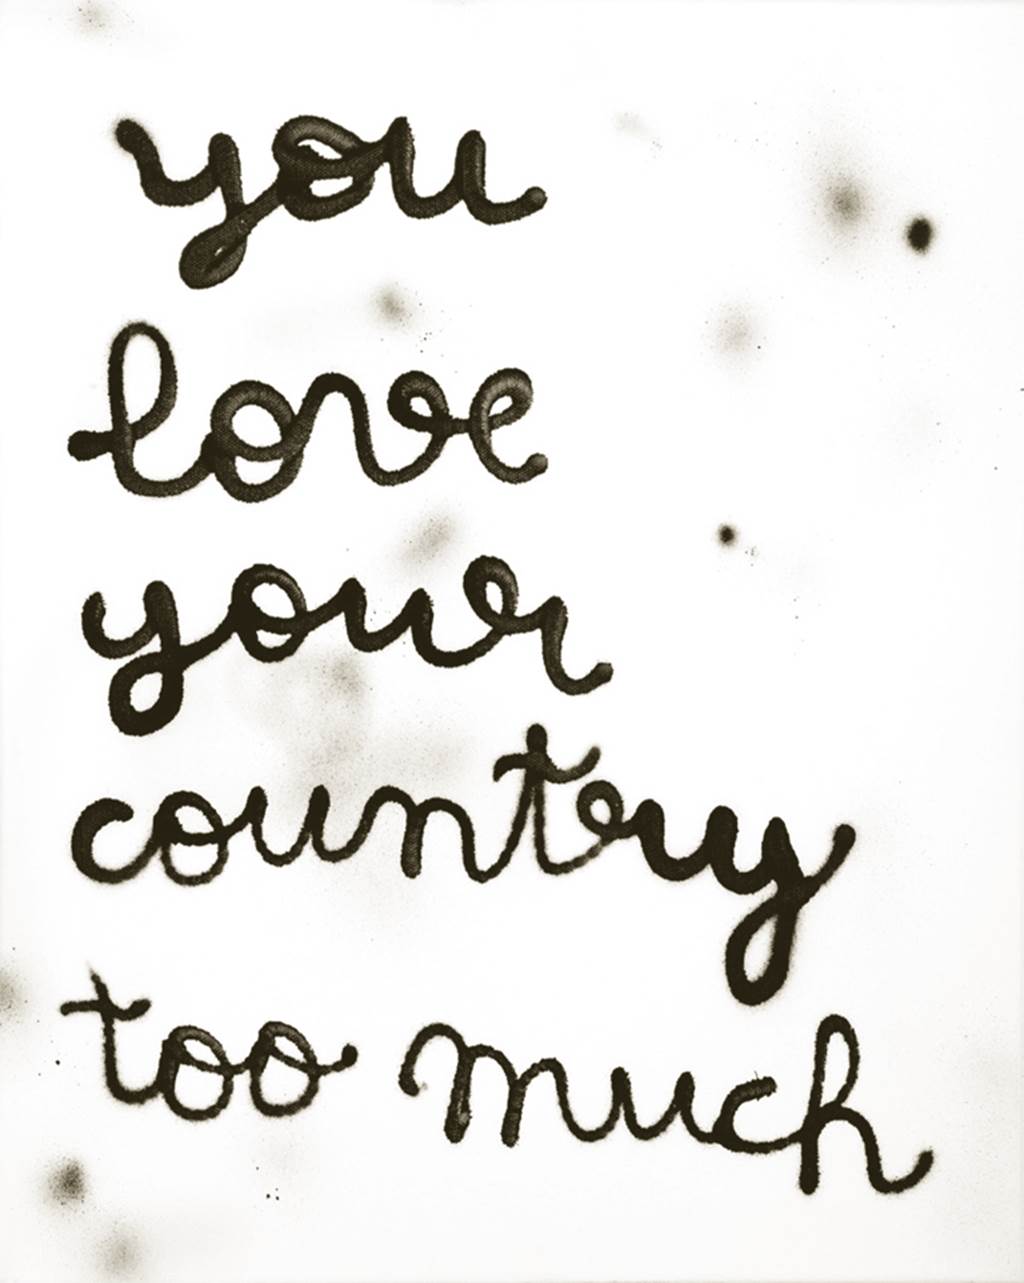 you
love
your
country
too much